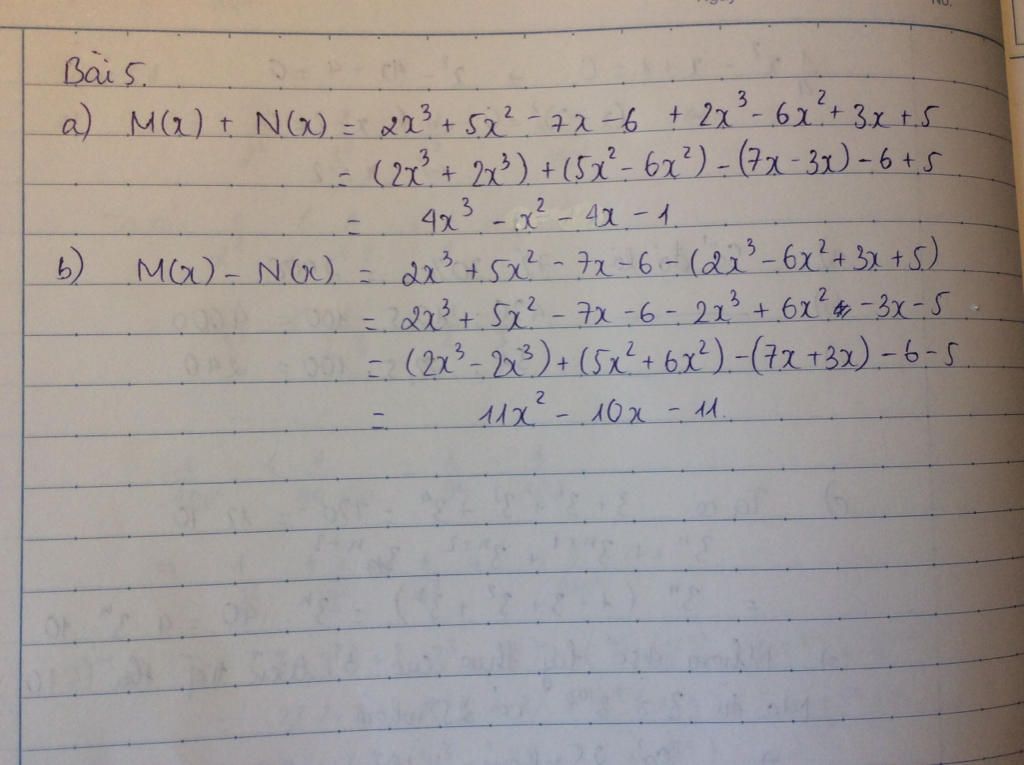 Bài 5.
a) M(x) + N(x) = 2x³ + 5x² - 7x - 6 + 2x³ - 6x² + 3x + 5
= (2x³ + 2x³) + (5x² - 6x²) - (7x - 3x) - 6 + 5
= 4x³ - x² - 4x - 1
b) M(x) - N(x) = 2x³ + 5x² - 7x - 6 - (2x³ - 6x² + 3x + 5)
= 2x³ + 5x² - 7x - 6 - 2x³ + 6x² - 3x - 5
= (2x³ - 2x³) + (5x² + 6x²) - (7x + 3x) - 6 - 5
= 11x² - 10x - 11.